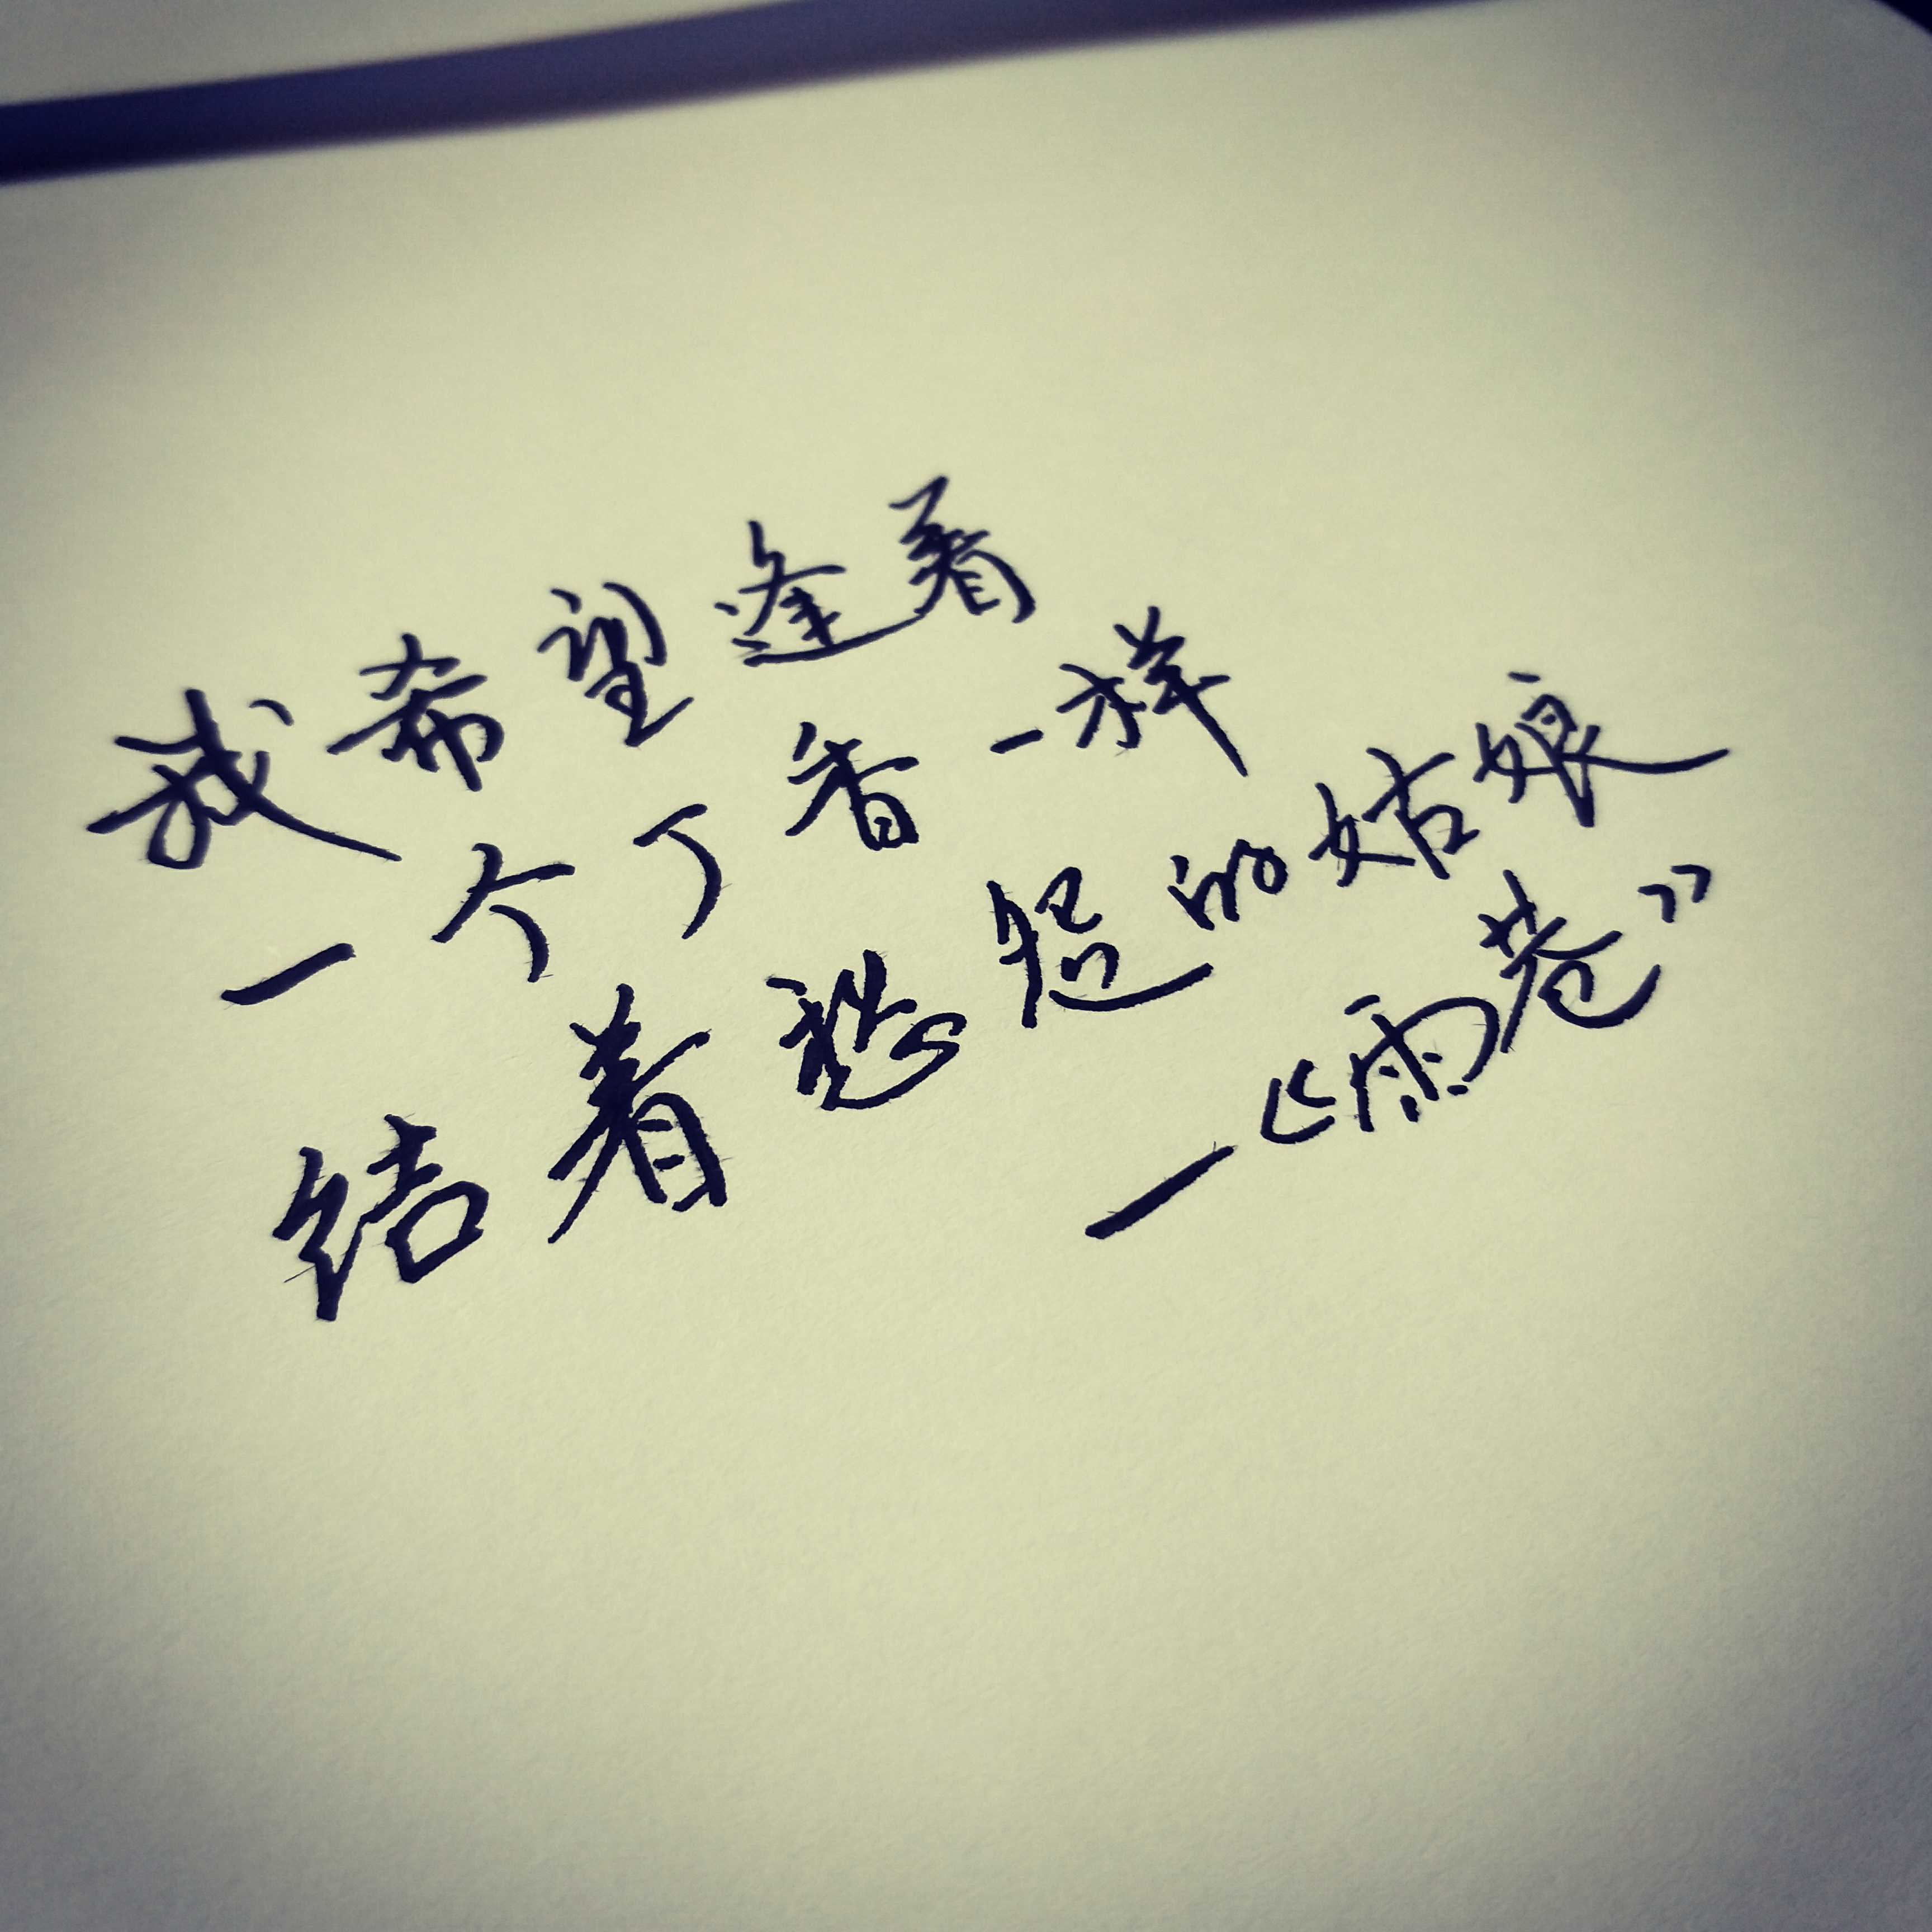 我希望逢着
一个丁香一样
结着愁怨的姑娘
—《雨巷》